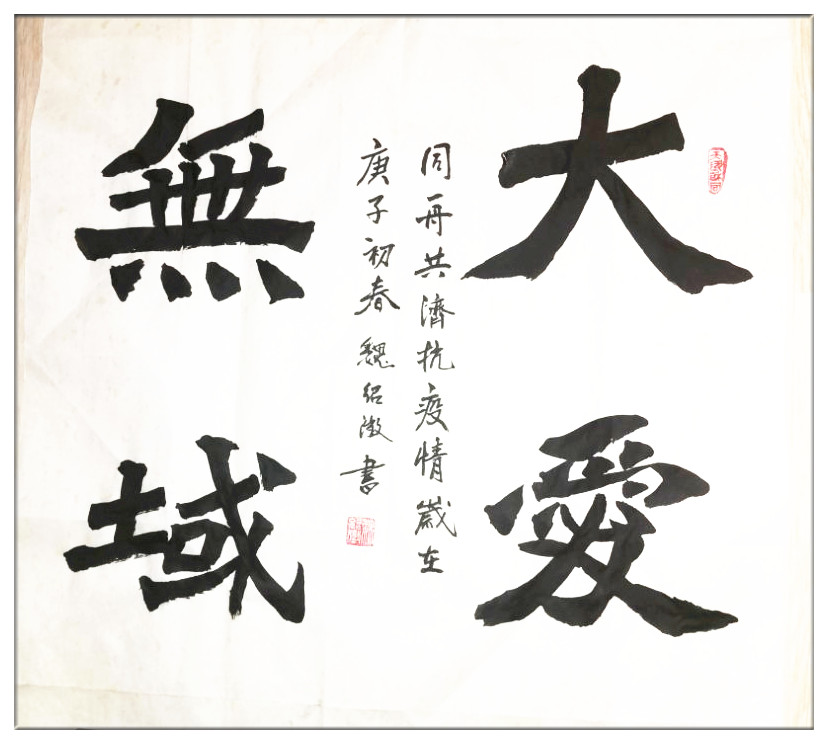 大愛
同舟共濟抗疫情歲在
庚子初春 魏紹澂書
無域